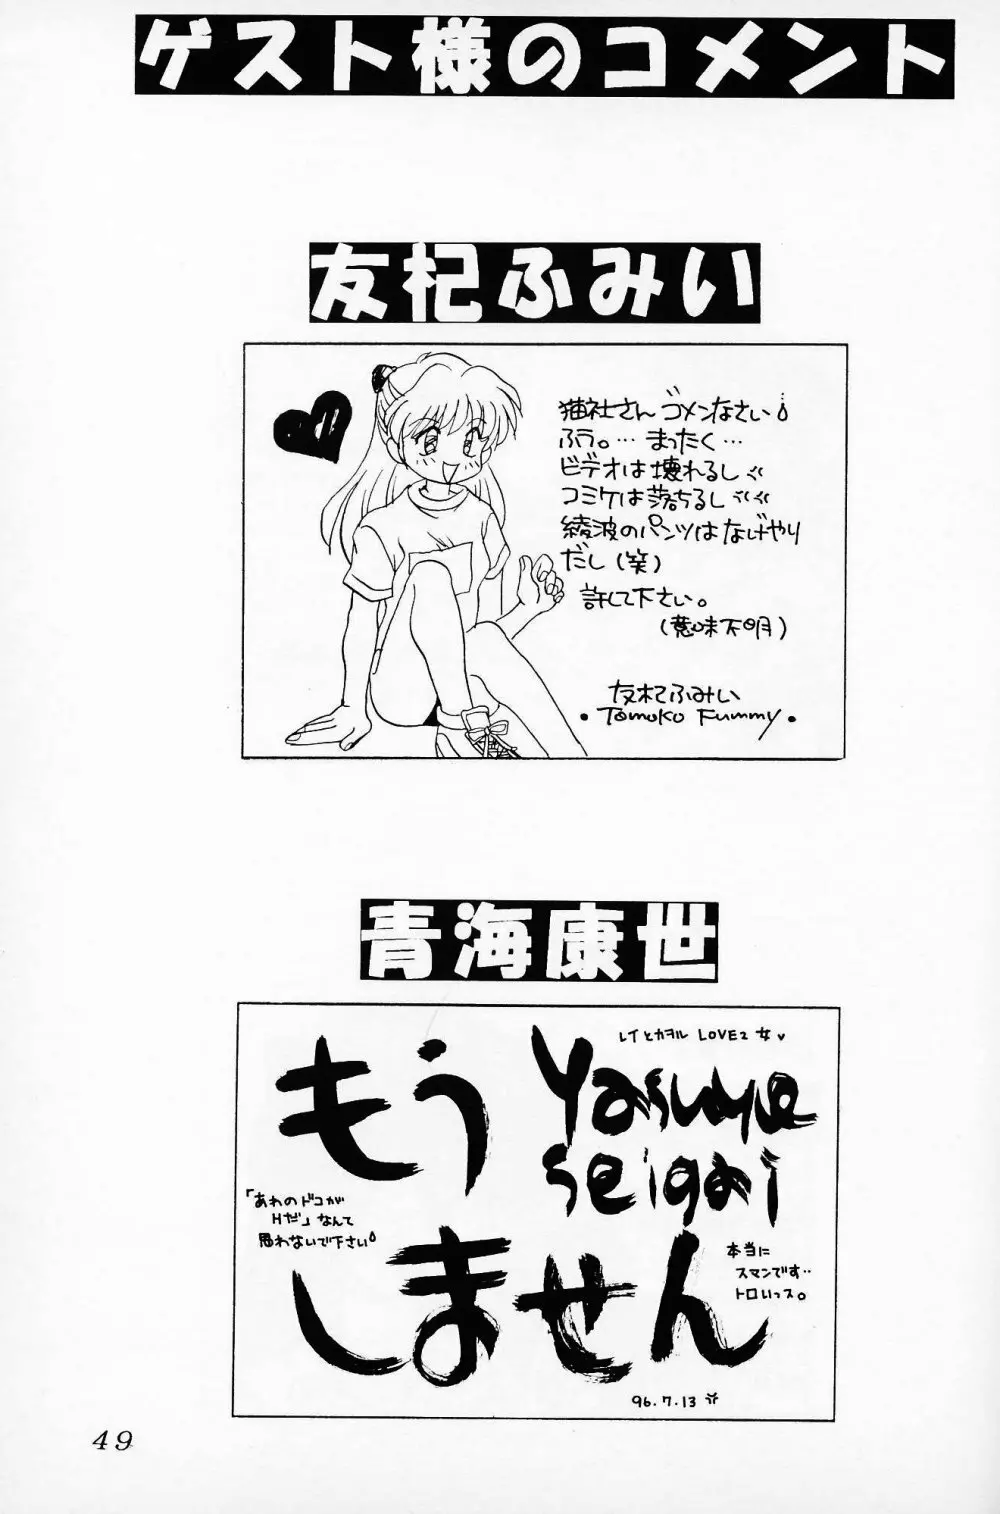 ゲスト様のコメント
友杞ふみい
猫社さんゴメンなさい
ふう。… まったく…
ビデオは壊れるし
コミケは落ちるし
綾波のパンツはなげやり
だし(笑)
許して下さい。
(意味不明)
友杞ふみい
・Tomoko Fummy・
青海康世
レイとカヲル LOVE2 女♥
Yasuyo
seigai
もう
「あわのドコが
Hだ」なんて
思わないで下さい
しません
本当に
スマンです‥
トロいっス。
96.7.13
49